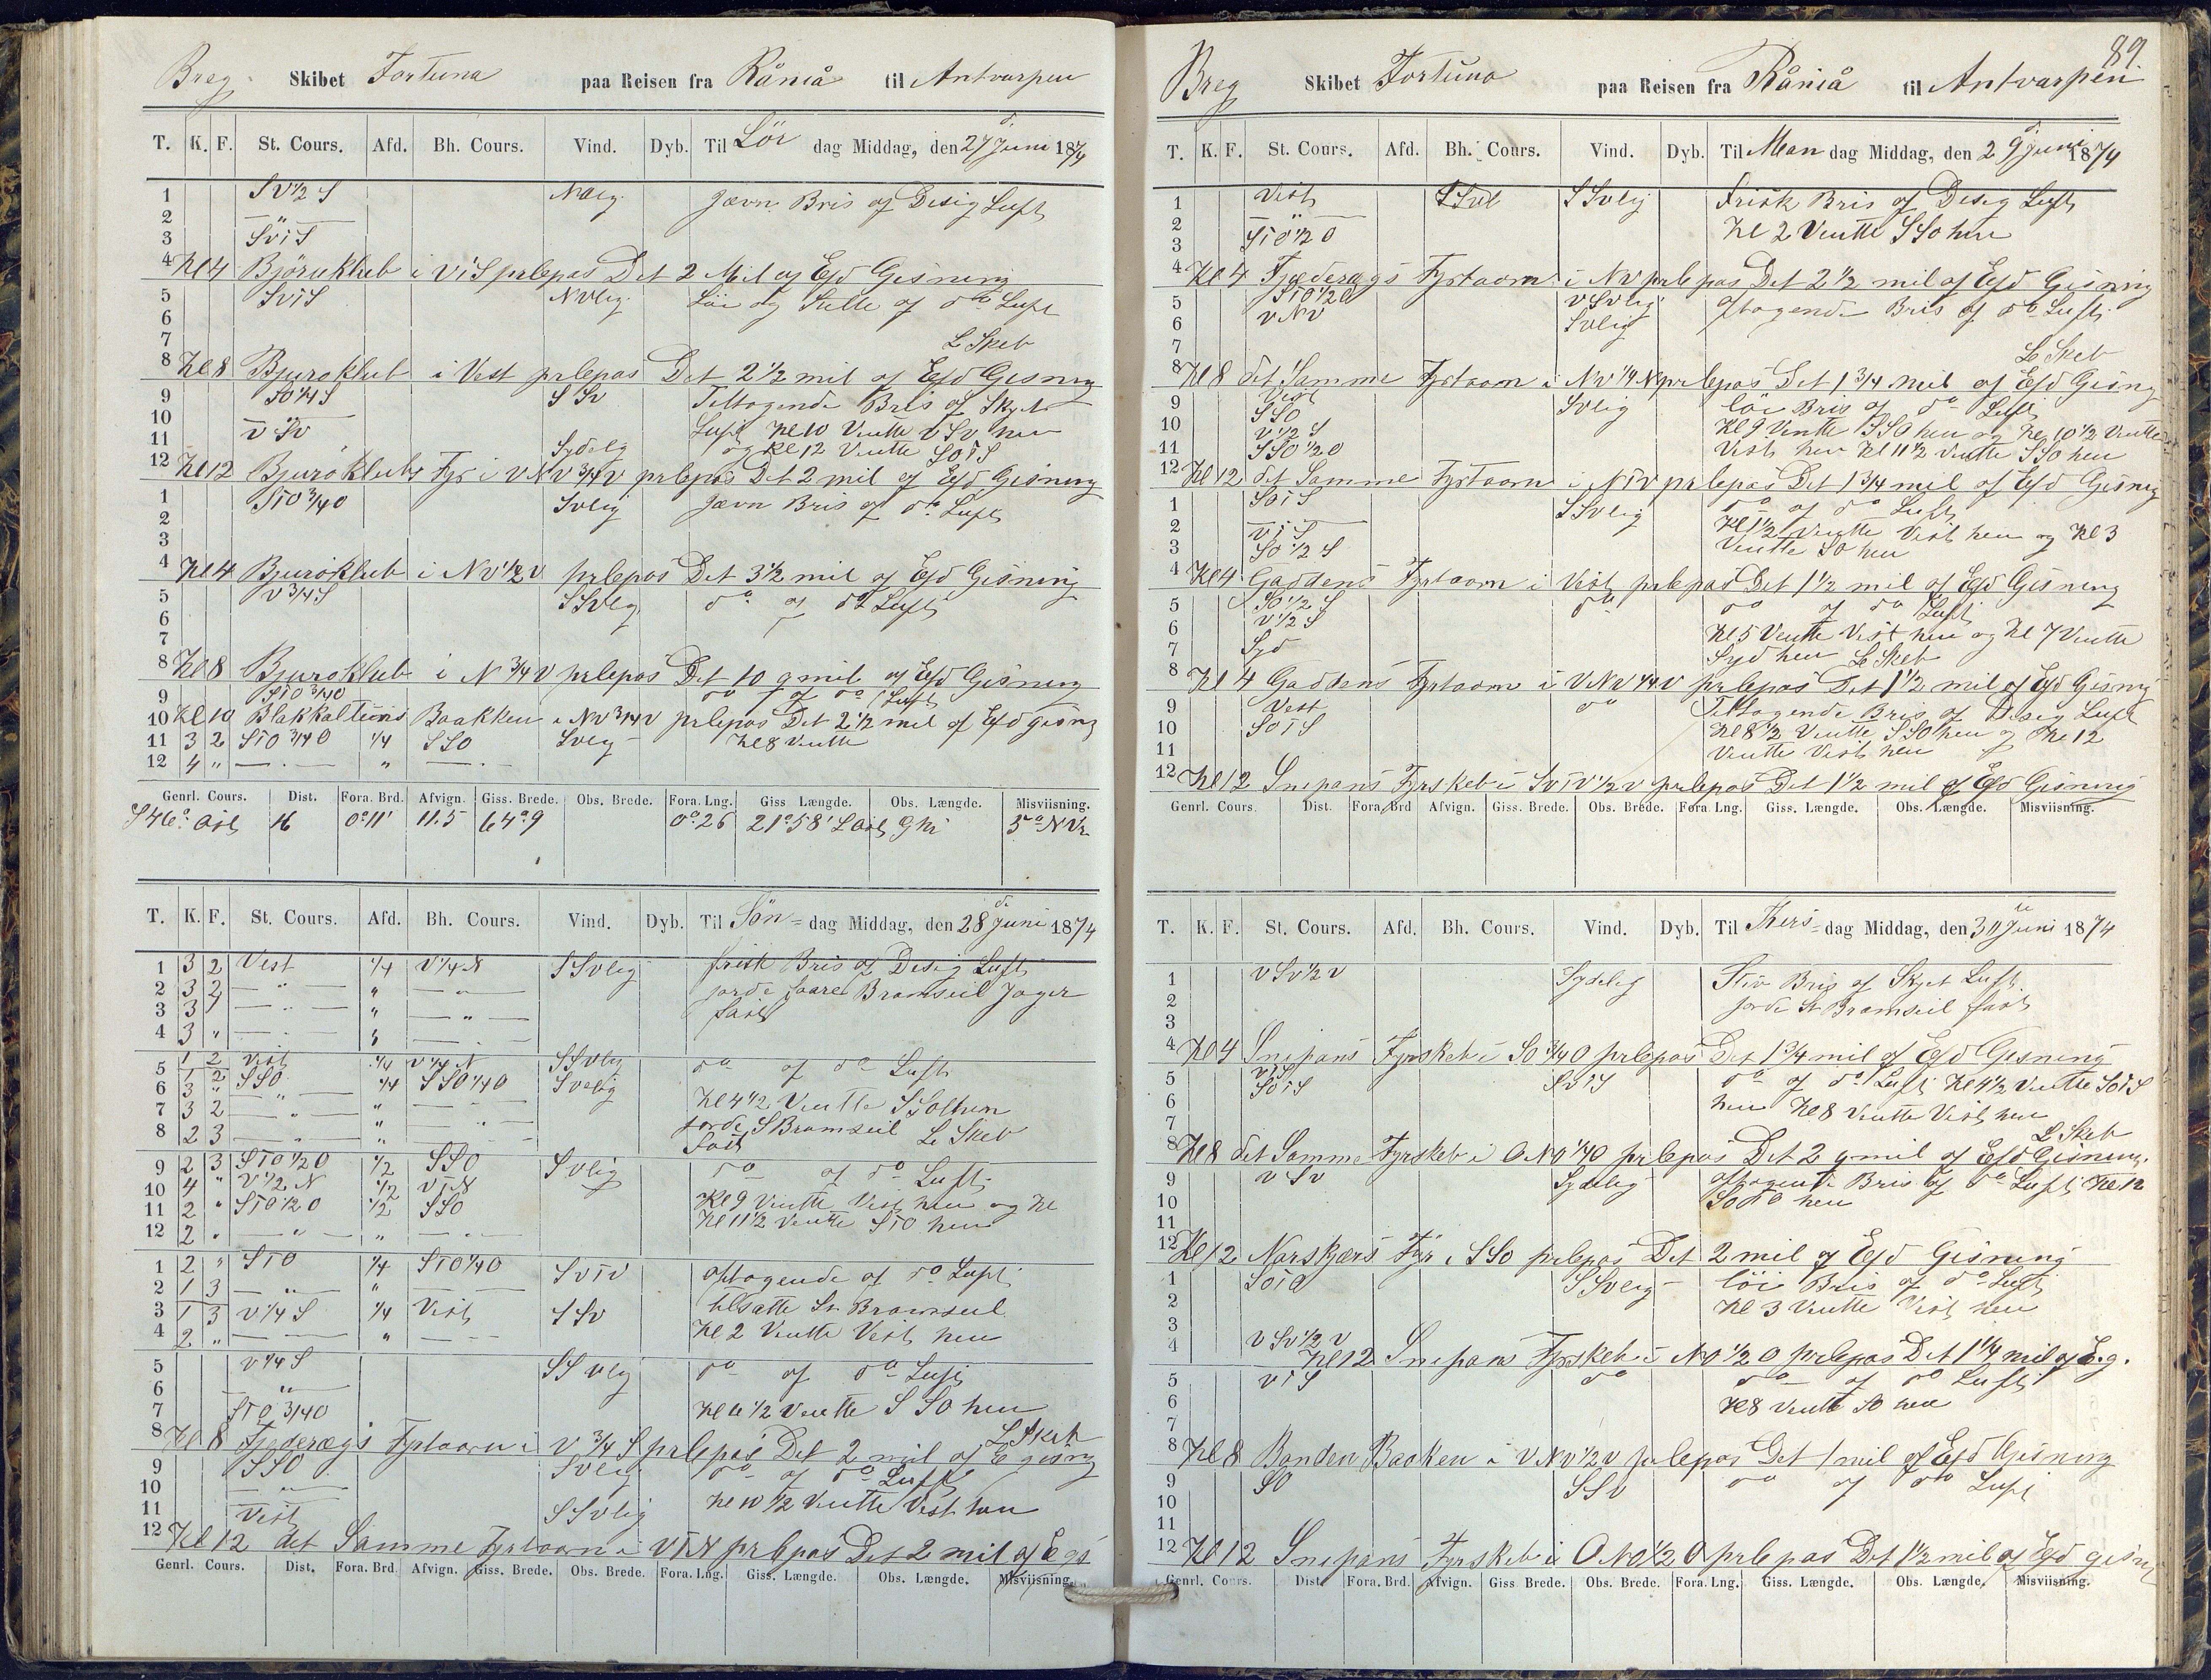 Breg Skibet Fortuna paa Reisen fra Råniå til Antvarpen
T. K. F. St. Cours. Afd. Bh. Cours. Vind. Dyb. Til Lör dag Middag, den 27 d Juni 1874
1 SV 1/2 S Jævn Bris og Disig Luft
2 — " —
3 SViS
4 Kl 4 i ViS prlepas Det 2 Mil og Efd Gisning
5 SViS NVlig Löi og Stille og do Luft
6
7 L Skeb
8 Kl 8 Bjuroklub i Vest prlepas Det 2 1/2 mil og Efd Gisning
9 SO 1/4 S SSv Tiltagende Bris og Skyet
10 — " — Luft Kl 10 Ventte VSv hen
11 v Sv Sydelg og Kl 12 Ventte SOiS
12 Kl 12 Bjuröklubs Fyr i VNV 3/4 V prlepas Det 2 mil og Efd Gisning
1 STO 3/4 O Svlig Jævn Bris og do Luft
2
3
4 Kl 4 Bjuröklub i NV 1/2 V prlepas Det 3 1/2 mil og Efd Gisning
5 V 3/4 S SSVlg do og do Luft
6
7
8 Kl 8 Bjuroklub i N 3/4 V prlepas Det 10 qmil og Efd Gisning
9 STO 3/4 O do og do Luft
10 Kl 10 Baakken i NV 3/4 V prlepas Det 2 1/2 mil og Efd gisng
11 3 2 STO 3/4 O 1/4 SSO Svlig Kl 8 Ventte
12 4 " — " — " — " —
Genrl. Cours. Dist. Fora. Brd. Afvign. Giss. Brede. Obs. Brede. Fora. Lng. Giss Længde. Obs. Længde. Misviisning.
S 46° Ost 16 0° 11' 11.5 64° 9 0° 26 21° 58' L Ost
T. K. F. St. Cours. Afd. Bh. Cours. Vind. Dyb. Til Sön= dag Middag, den 28 de Juni 1874
1 3 2 Vest 1/4 V 1/4 N SSvlig frisk Bris og Desig Luft
2 3 2 — " — " — " — jorde Bramseil Jager
3 3 1 — " — " — " — fast
4 3 " — " — " — " —
5 1 2 Vest 1/4 V 1/4 N SSvlig do og do Luft
1 2 SSO 1/4 SSO 1/4 O Svelig
6 3 " — " — " — " — Kl 4 1/2 Ventte hen
7 3 2 — " — " — " — jorde S Bramseil Le Skeb
8 2 3 — " — " — " — fast
9 2 3 STO 1/2 O 1/2 SSO Svlig do og do Luft
10 4 " V 1/2 N 1/2 VTN Kl 9 Ventte Vest hen og Kl
11 2 " STO 1/2 O 1/2 SSO Kl 11 1/2 Ventte STO hen
12 2 " — " — " — " —
1 2 " STO 1/4 STO 1/4 O SvTv aftagende og do Luft
2 1 3 — " — "
3 1 3 V 1/4 S 1/4 Vest SSv tilsatte St Bramseil
4 2 " — " — " — " — Kl 2 Ventte Vest hen
5 V 1/4 S SSvlig do og do Luft
6 — " —
7 STO 3/4 O Kl 6 1/2 Ventte SSO hen
8 Kl 8 Fyrtaarn i V 3/4 S prlepas Det 2 mil og E gisng L Skeb
9 SSO Svlig do og do Luft
10 — " — Kl 10 1/2 Ventte Vest hen
11 Vest SSvlig
12 Kl 12 det Samme Fyrtaarn i VTN prlepas Det 2 mil og E gs
Genrl. Cours. Dist. Fora. Brd. Afvign. Giss. Brede. Obs. Brede. Fora. Lng. Giss. Længde. Obs. Længde. Misviisning.
89
Breg Skibet Fortuna paa Reisen fra Råniå til Antvarpen
T. K. F. St. Cours. Afd. Bh. Cours. Vind. Dyb. Til Man dag Middag, den 29 d Juni 1874
1 Vest SSvlig Frisk Bris og Desig Luft
2 — " — Kl 2 Ventte SSO hen
3 STO 1/2 O
4 Kl 4 Fyrtaarn i NV prlepas Det 2 1/2 mil og Efd Gisning
5 STO 1/2 O VSvlig Aftagende Bris og do Luft
6 V NV Svlig
7 Le Skeb
8 Kl 8 det Samme Fyrtaarn i NV 1/4 N prlepas Det 1 3/4 mil og Efd Gisng
9 Vest Svlig löi Bris og do Luft
10 SSO Kl 9 Ventte SSO hen og Kl 10 1/2 Ventte
V 1/2 S
11 SSO 1/2 O Vest hen Kl 11 1/2 Ventte SSO hen
12 Kl 12 det Samme Fyrtaarn i NTV prlepas Det 1 3/4 mil og Efd Gisng
1 SOiS SSvlig do og do Luft
2 ViS Kl 1 1/2 Ventte Vest hen og Kl 3
3 SO 1/2 S Ventte SO hen
4 Kl 4 Gaddens Fyrtaarn i Vest prlepas Det 1 1/2 mil og Efd Gisning
5 SO 1/2 S do do og do Luft
6 V 1/2 S Kl 5 Ventte Vest hen og Kl 7 Ventte
7 Syd Syd hen Le Skeb
8 Kl 4 Gaddens Fyrtaarn i VNV 1/4 V prlepas Det 1 1/2 mil og Efd Gisng
9 Vest do Tiltagende Bris og Disig Luft
10 SOTS Kl 8 1/2 Ventte SSO hen og Kl 12
11 Ventte Vest hen
12 Kl 12 Snipans Fyrskeb i SVTV 1/2 V prlepas Det 1 1/2 mil og Efd Gisning
Genrl. Cours. Dist. Fora. Brd. Afvign. Giss. Brede. Obs. Brede. Fora Lng. Giss. Længde. Obs. Længde. Misviisning.
T. K. F. St. Cours. Afd. Bh. Cours. Vind. Dyb. Til Ters= dag Middag, den 30 te Juni 1874
1 V SV 1/2 V Sydelig Stiv Bris og Skyet Luft
2 jorde St Bramseil fast
3
4 Kl 4 Snipans Fyrskeb i SO 3/4 O prlepas Det 1 3/4 mil og Efd Gisning
5 ViS SviS do og do Luft Kl 4 1/2 Ventte SOTS
6 SOTS hen Kl 8 Ventte Vest hen
7 L Skeb
8 Kl 8 det Samme Fyrskeb i ONO 1/4 O prlepas Det 2 qmil og Efd Gisning.
9 v Sv Sydelig aftagende Bris og do Luft Kl 12
10 hen
11
12 Kl 12 Norskjærs Fyr i SSO prlepas Det 2 mil og Efd Gisning
1 SOTO SSvelig löi Bris og do Luft
2 Kl 3 Ventte Vest hen
3
4 V SV 1/2 V
Kl 12 Snipans Fyrskeb i NO 1/2 O prlepas Det 1 1/4 mil og E.g.
5 ViS do do og do Luft
6 Kl 8 Ventte SO hen
7
8 Kl 8 Baaken i VNV 1/2 V prlepas Det 1 mil og Efd Gisning
9 SO SSv do og do Luft
10
11
12 Kl 12 Snipans Fyrskeb i ONO 1/2 O prlepas Det 1 1/2 mil og Efd gisn
Genrl. Cours. Dist. Fora. Brd. Afvign. Giss. Brede. Obs. Brede. Fora. Lng. Giss. Længde. Obs. Længde. Misviisning.